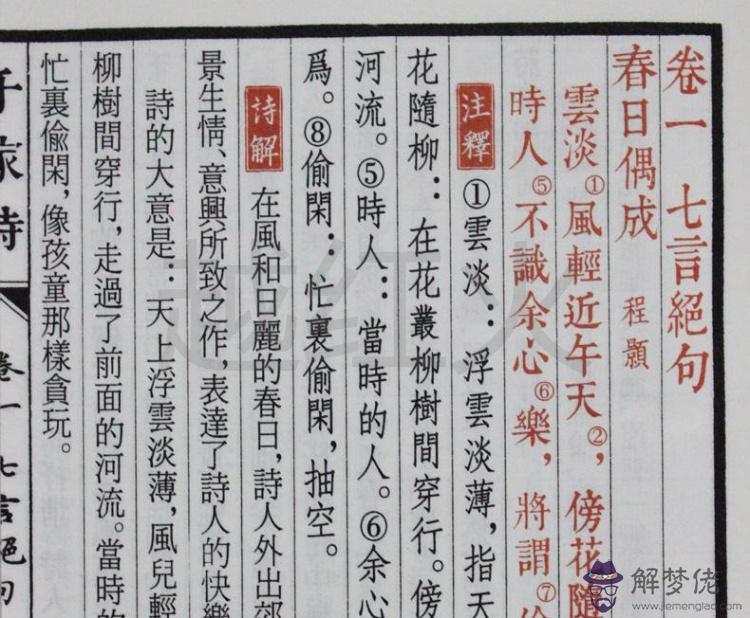 卷一 七言絕句
春日偶成 程顥
雲淡①風輕近午天②，傍花隨
時人⑤不識余心⑥樂，將謂⑦
注釋 ①雲淡：浮雲淡薄，指天
花隨柳：在花叢柳樹間穿行。傍
河流。⑤時人：當時的人。⑥余心
爲。⑧偷閑：忙裏偷閑，抽空。
詩解 在風和日麗的春日，詩人外出郊
景生情、意興所致之作，表達了詩人的快樂
詩的大意是：天上浮雲淡薄，風兒輕
柳樹間穿行，走過了前面的河流。當時的
忙裏偷閑，像孩童那樣貪玩。
千家詩 卷一 七言絕句
越红火
解梦佬
www.jiemenglao.com